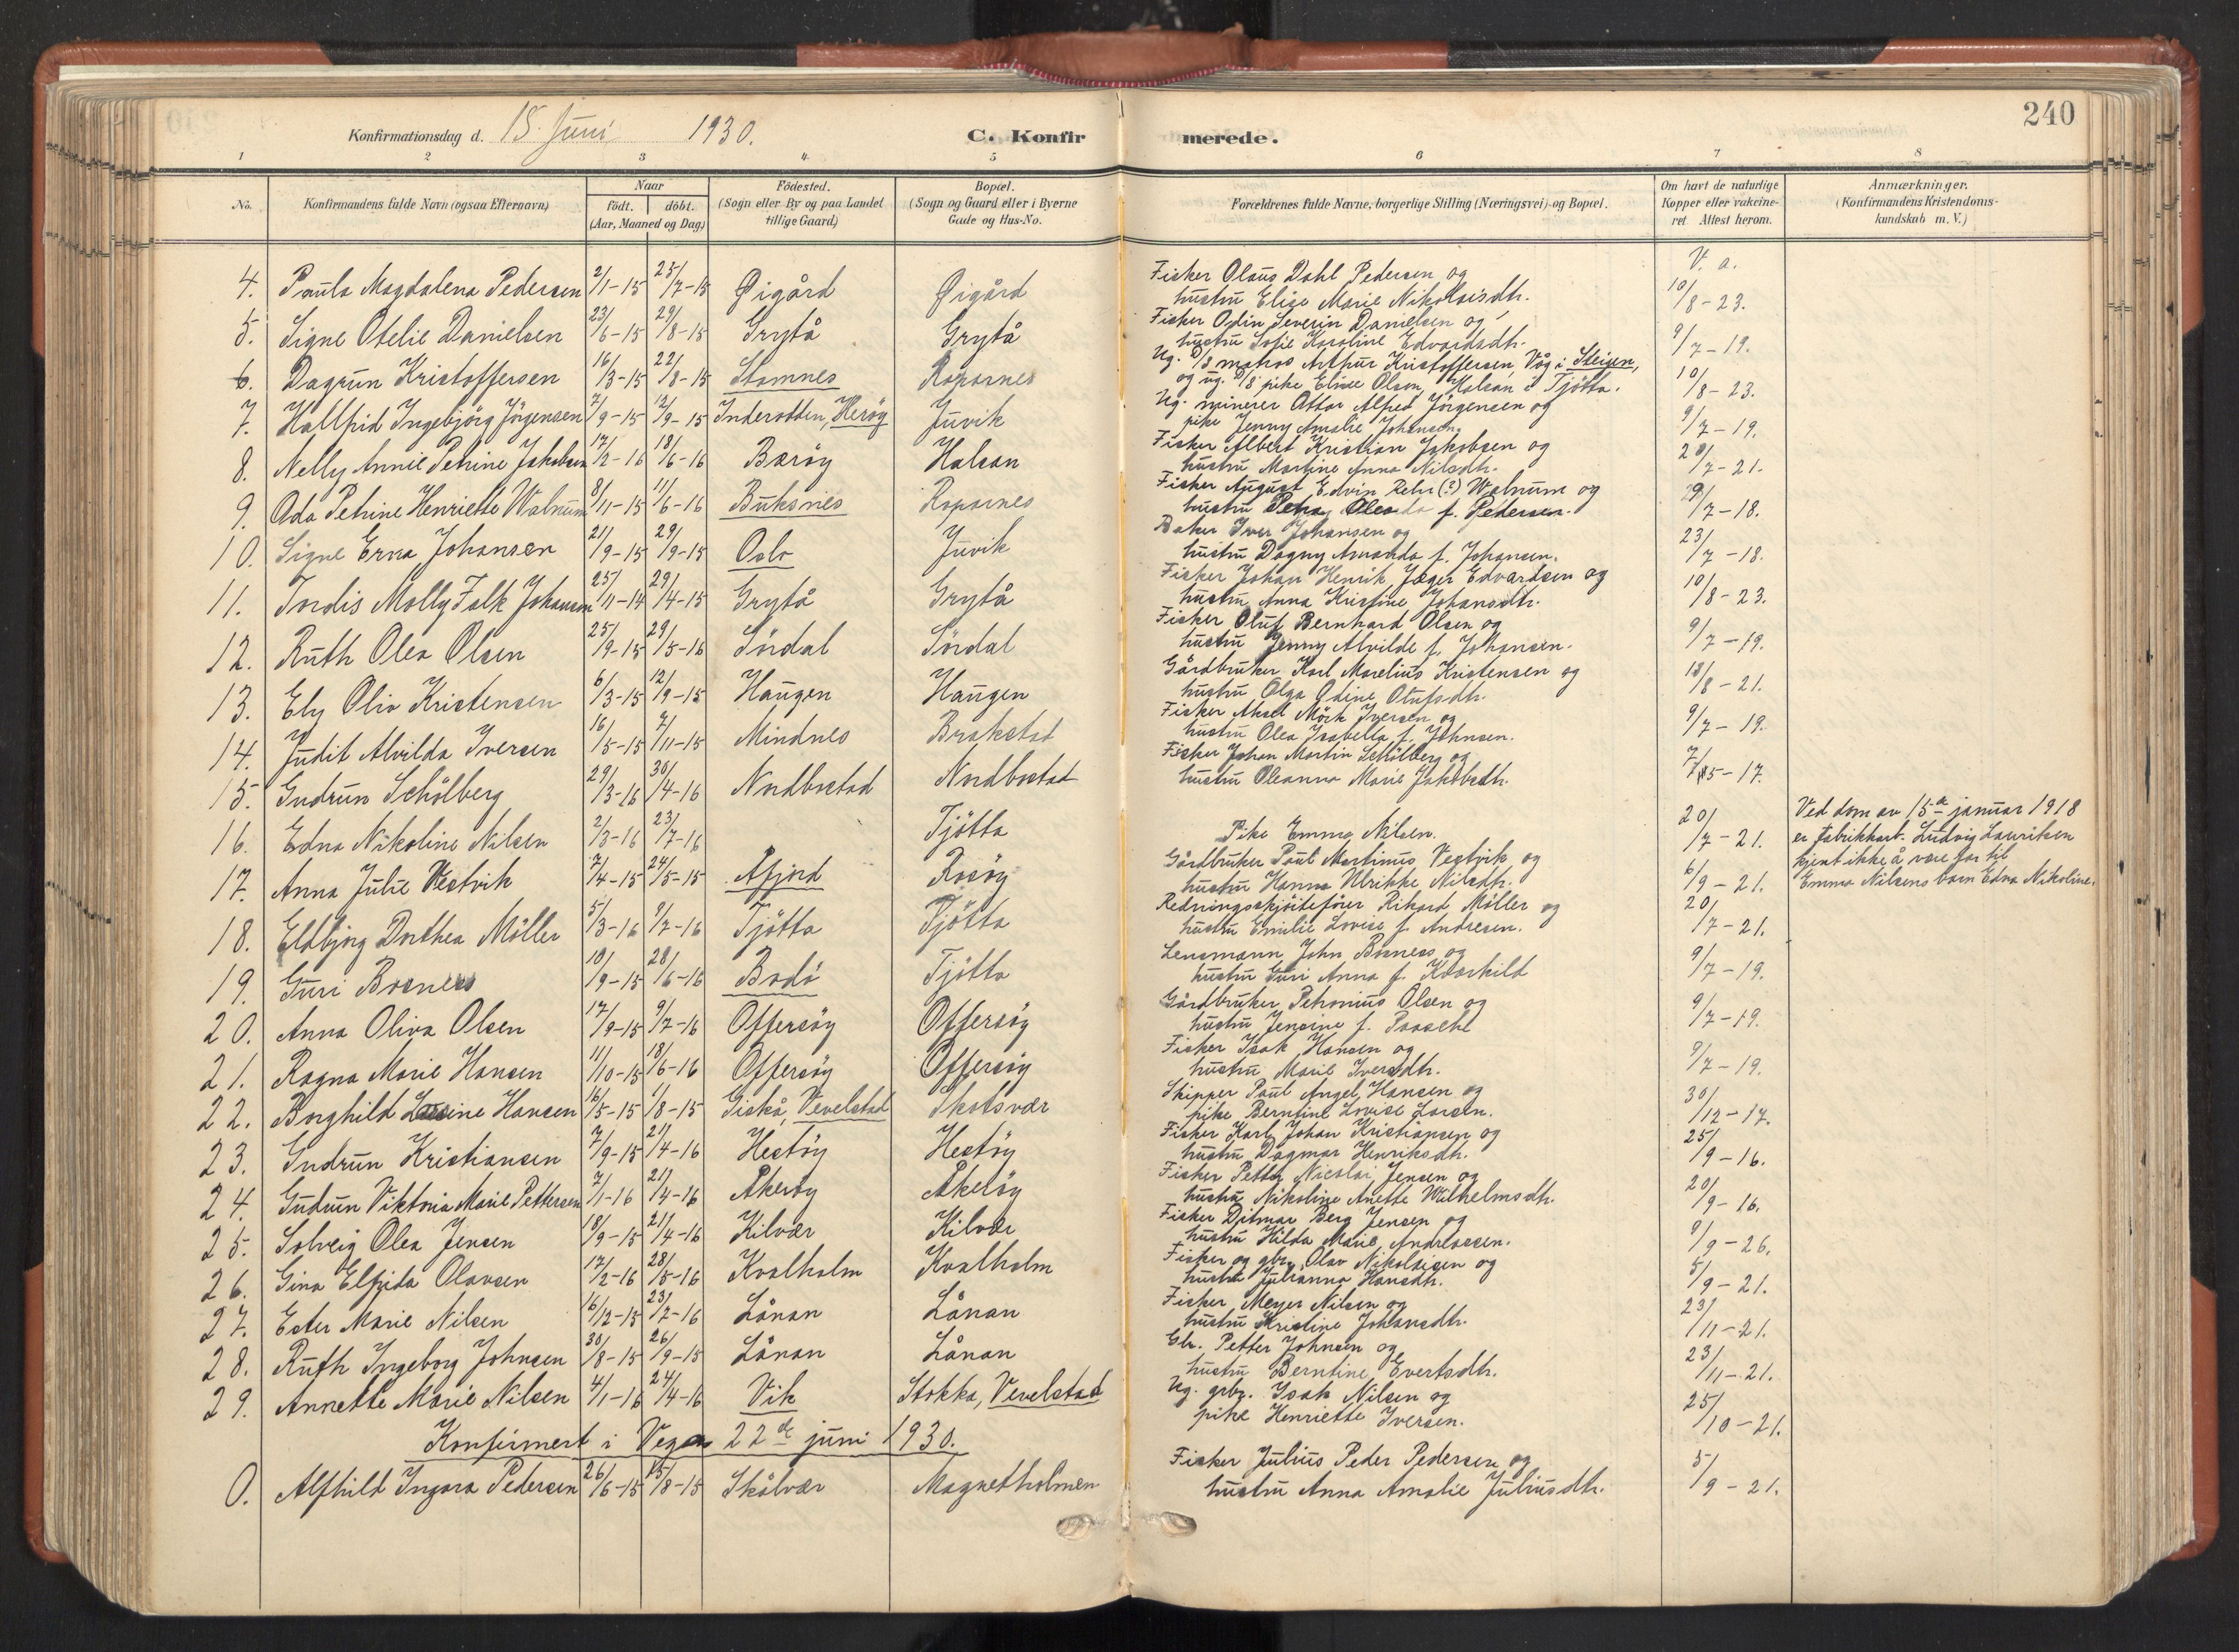 240
Konfirmationsdag d. 15. Juni 1930. C. Konfirmerede.
1 2 3 4 5 6 7 8
No.
Konfirmandens fulde Navn (ogsaa Efternavn)
Naar
födt. döbt.
(Aar, Maaned og Dag)
Födested.
(Sogn eller By og paa Landet
tillige Gaard)
Bopæl.
(Sogn og Gaard eller i Byerne
Gade og Hus-No.
Forældrenes fulde Navne, borgerlige Stilling (Næringsvei) og Bopæl.
Om havt de naturlige
Kopper eller vakcine-
ret Attest herom.
Anmærkninger.
(Konfirmandens Kristendoms-
kundskab m. V.)
V. a.
4. Paula Magdalena Pedersen 2/1-15 25/7-15 Øigård Øigård Fisker Olaus Dahl Pedersen og 10/8-23.
hustru Elise Marie Nikolaisdtr.
5. Signe Otelie Danielsen 23/6-15 29/8-15 Grytå Grytå Fisker Odin Severin Danielsen og 9/7-19.
hustru Sofie Karoline Edvardsdtr.
6. Dagrun Kristoffersen 16/3-15 22/8-15 Stamnes Roparnes Ug. matros Arthur Kristoffersen, Våg i Steigen, 10/8-23.
og ug. pike Elise Olsen, Halsan i Tjötta.
7. Hallfrid Ingebjörg Jörgensen 7/9-15 12/9-15 Inderodden, Heröy Juvik Ug. minerer Ottar Alfred Jörgensen og 9/7-19.
pike Jenny Amalie Johansen
8. Nelly Annie Petrine Jakobsen 17/2-16 18/6-16 Baröy Halsan Fisker Albert Kristian Jakobsen og 20/7-21.
hustru Martine Anna Nilsdtr.
9. Ada Petrine Henriette Walnum 8/11-15 11/6-16 Buksnes Roparnes Fisker August Edvin Rehr (?) Walnum og 29/7-18.
hustru Petra f. Pedersen.
10. Signe Erna Johansen 21/9-15 29/9-15 Oslo Juvik Baker Iver Johansen og 23/7-18.
hustru Dagny Amanda f. Johansen.
11. Tordis Molly Falk Johansen 25/11-14 29/4-15 Grytå Grytå Fisker Johan Henrik Jæger Edvardsen og 10/8-23.
hustru Anna Kristine Johansdtr.
12. Ruth Olea Olsen 25/9-15 29/5-16 Sördal Sördal Fisker Oluf Bernhard Olsen og 9/7-19.
hustru Jenny Alvilde f. Johansen.
13. Ely Oliv Kristensen 6/3-15 12/9-15 Haugen Haugen Gårdbruker Karl Marelius Kristensen og 18/8-21.
hustru Olga Odine Olufsdtr.
14. Judit Alvilda Iversen 16/5-15 7/11-15 Mindnes Brakstad Fisker Aksel Mörk Iversen og 9/7-19.
hustru Olea Isabella f. Johnsen.
15. Gudrun Schölberg 29/3-16 30/4-16 Nordbostad Nordbostad Fisker Johan Martin Schölberg og
hustru Oleanna Marie Jakobsdtr.
16. Edna Nikoline Nilsen 2/3-16 23/7-16 Tjötta Pike Emma Nilsen. 20/7-21.
Ved dom av 15de januar 1918
er fabrikkarb. Ludvig Lauriksen
kjent ikke å være far til
Emma Nilsens barn Edna Nikoline.
17. Anna Julie Vestvik 7/4-15 24/5-15 Åfjord Rosöy Gårdbruker Paul Martinus Vestvik og 6/9-21.
hustru Hanna Ulrikke Nilsdtr.
18. Eldbjörg Dorthea Möller 5/3-16 9/7-16 Tjötta Tjötta Redningsskjöitefører Rikard Möller og 20/7-21.
hustru Emilie Lovise f. Andresen.
19. Guri Bosness 10/9-15 28/6-16 Bodö Tjötta Lensmann John Bosness og 9/7-19.
hustru Guri Anna f. Kvarkild
20. Anna Oliva Olsen 17/9-15 9/7-16 Offersöy Offersöy Gårdbruker Petronius Olsen og 9/7-19.
hustru Jensine f. Paasche
21. Ragna Marie Hansen 11/10-15 18/6-16 Offersöy Offersöy Fisker Isak Hansen og 9/7-19.
hustru Marie Iversdtr.
22. Borghild Hansen 16/5-15 1/8-15 Giskå, Vevelstad Skotsvær Skipper Paul Angel Hansen og 30/12-17.
pike Berntine Lovise Larsen.
23. Gudrun Kristiansen 7/9-15 21/4-16 Hestöy Hestöy Fisker Karl Johan Kristiansen og 25/9-16.
hustru Dagmar Henriksdtr.
24. Gudrun Viktoria Marie Pettersen 7/1-16 21/4-16 Åkeröy Åkeröy Fisker Petter Nicolai Jensen og 20/9-16.
hustru Nikoline Anette Wilhelmsdtr.
25. Solveig Olea Jensen 18/9-15 21/4-16 Kilvær Kilvær Fisker Ditmar Berg Jensen og 9/9-26.
hustru Hilda Marie Andreassen.
26. Gina Elfrida Olavsen 17/2-16 28/5-16 Kvalholm Kvalholm Fisker og gbr. Olav Nikolaisen og 5/9-21.
hustru Julianna Hansdtr.
27. Ester Marie Nilsen 16/12-15 23/7-16 Lånan Lånan Fisker Meyer Nilsen og 23/11-21.
hustru Kristine Johansdtr.
28. Ruth Ingeborg Johnsen 30/8-15 26/9-15 Lånan Lånan Gbr. Petter Johnsen og 23/11-21.
hustru Berntine Evertsdtr.
29. Annette Marie Nilsen 4/1-16 24/4-16 Vik Stokka, Vevelstad Ug. grbr. Isak Nilsen og 25/10-21.
pike Henriette Iversen.
Konfirmert i Vega 22de juni 1930.
0. Alfhild Ingara Pedersen 26/6-15 15/8-15 Skålvær Magnetholmen Fisker Julius Peder Pedersen og 5/9-21.
hustru Anna Amalie Juliusdtr.